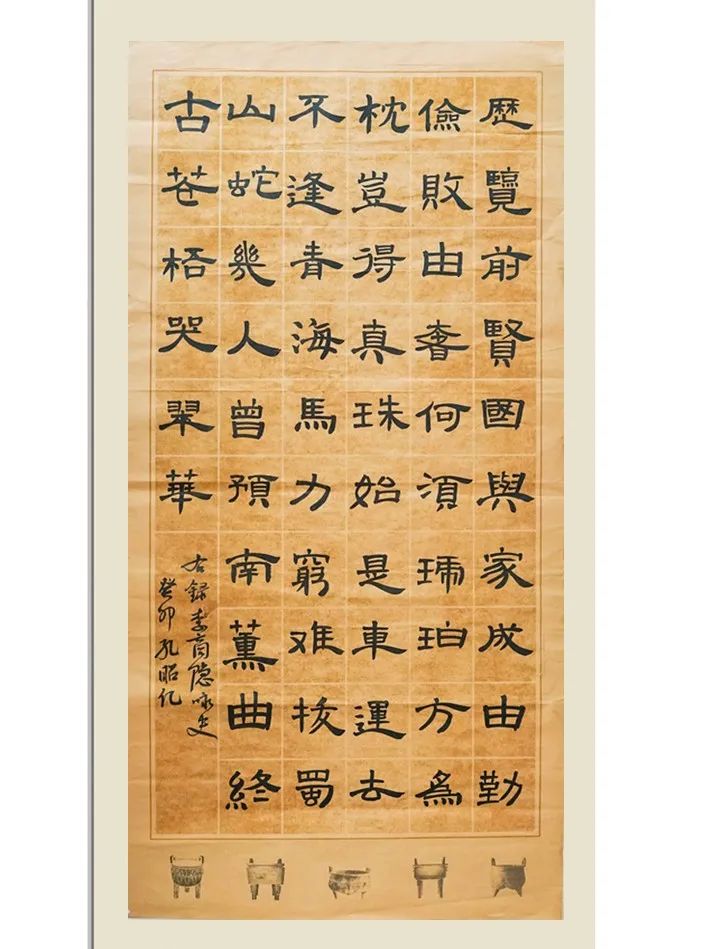 歷覽前賢國與家成由勤
儉敗由奢何須琥珀方為
枕豈得真珠始是車運去
不逢青海馬力窮难拔蜀
山蛇幾人曾預南薰曲終
古蒼梧哭翠華
右録李商隐咏史
癸卯孔昭亿